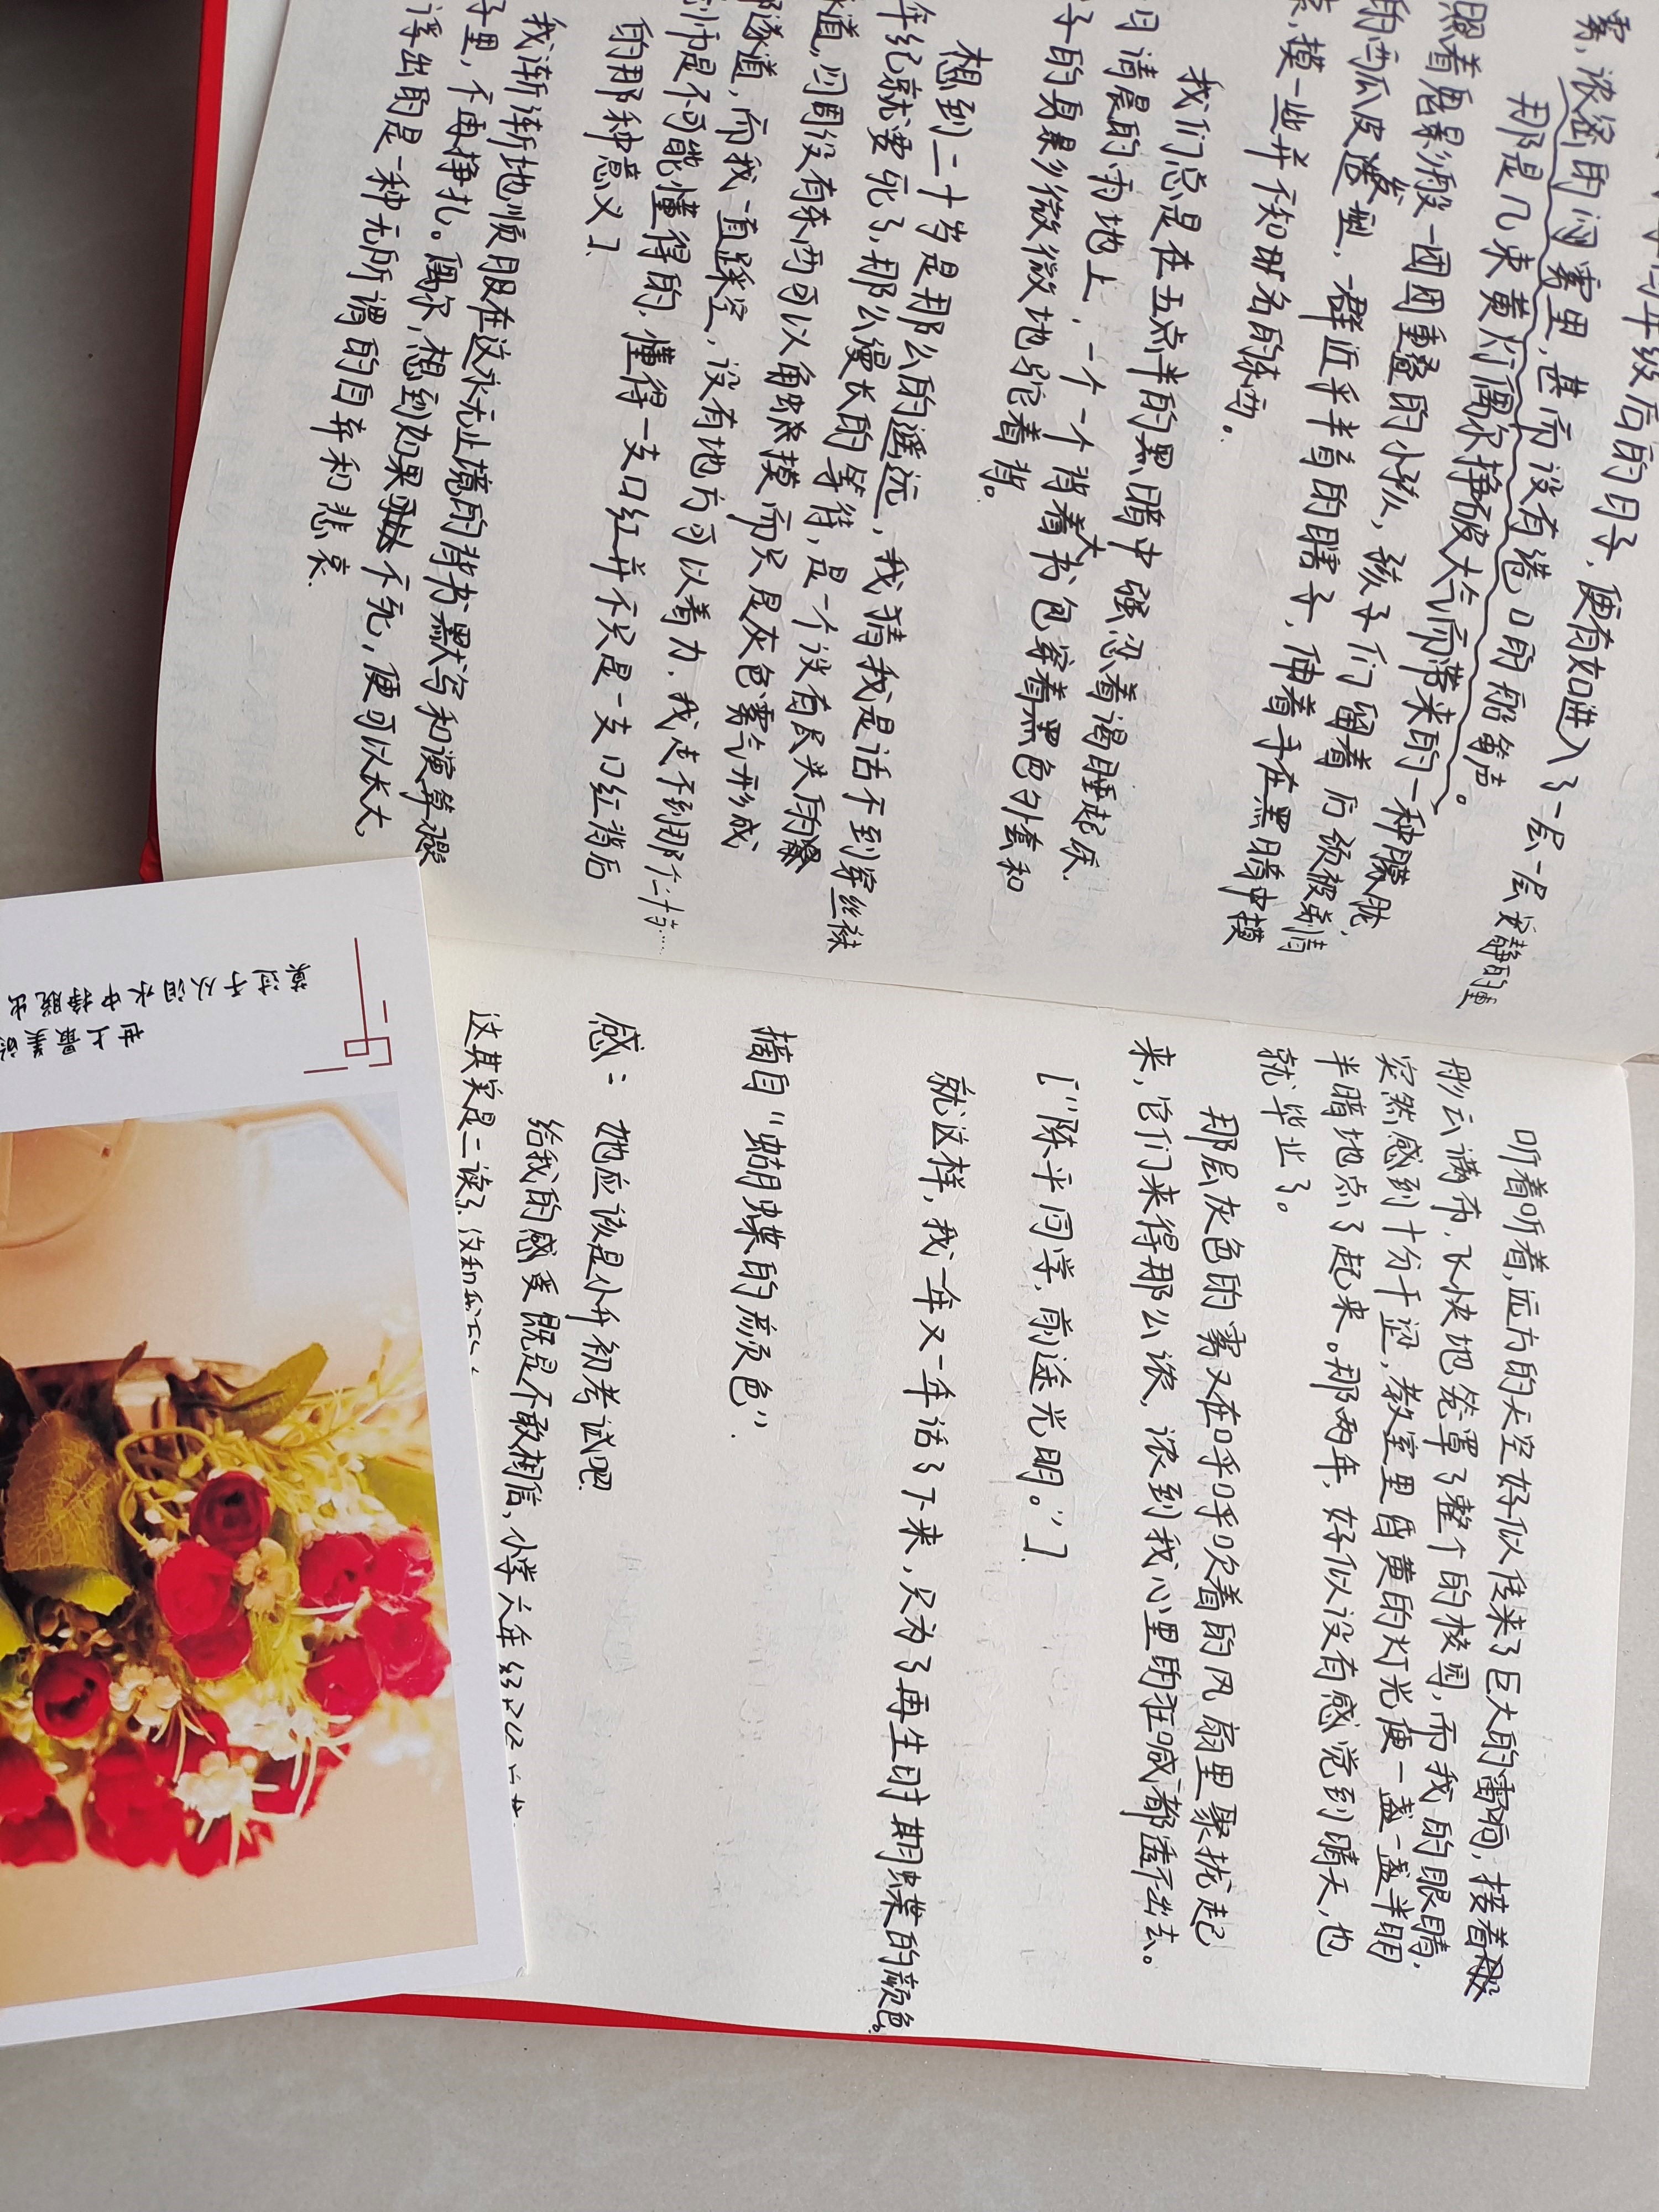 级后的日子,便有如进入了一层一层寂静的重
雾,浓密的闷雾里,甚而没有港口的船笛声。
那是几束黄灯偶尔挣破大气而带来的一种朦胧,
照着鬼影般一团团重叠的小孩,孩子们留着后颈被剃青
的西瓜皮发型,一群近乎半盲的瞎子,伸着手在黑暗中摸
摸一些并不知册名的东西。
我们总是在五点半的黑暗中强忍着渴睡起床,
清晨的雨地上,一个一个背着大书包穿着黑色外套和
子的身影微微地驼着背。
想到二十岁是那么的遥远,我猜我是活不到穿丝袜
年纪就要死了,那么漫长的等待,是一个没有尽头的隧
道,四周没有东西可以触摸而只是灰色雾气形成
隧道,而我一直踩空,没有地方可以着力,我走不到那个二十岁……
师是不可能懂得的,懂得一支口红并不只是一支口红背后
的那种意义了。
我渐渐地顺服在这永无止境的背书默写和演算
子里,不再挣扎。偶尔,想到如果不死,便可以长大,
浮出的是一种无所谓的自弃和悲哀。
听着听着,远方的天空好似传来了巨大的雷响,接着
彤云满布,飞快地笼罩了整个的校园,而我的眼睛,
突然感到十分干涩,教室里昏黄的灯光便一盏一盏半明
半暗地点了起来。那两年,好似没有感觉到晴天,也
就毕业了。
那层灰色的雾又在呼呼吹着的风扇里聚拢起
来,它们来得那么浓,浓到我心里的狂喊都透不出去。
[“陈平同学,前途光明。”]
就这样,我一年又一年活了下来,只为了再生时蝴蝶的颜色。
摘自“蝴蝶的颜色”.
感:她应该是小升初考试吧.
给我的感受既是不敢相信,小学六年
这其实是二读了.
世上最美
莫过于从泪水中挣脱出